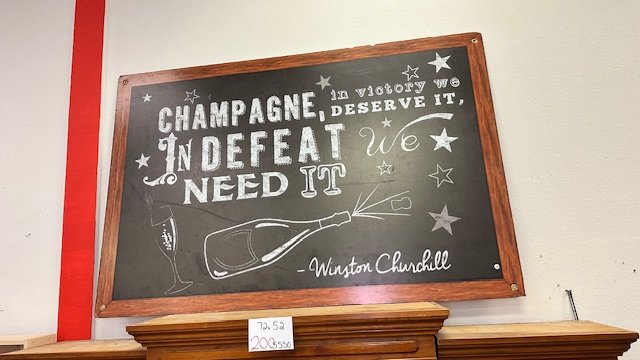 CHAMPAGNE, in victory we DESERVE IT,
IN DEFEAT We
NEED IT
- Winston Churchill
72.52
200